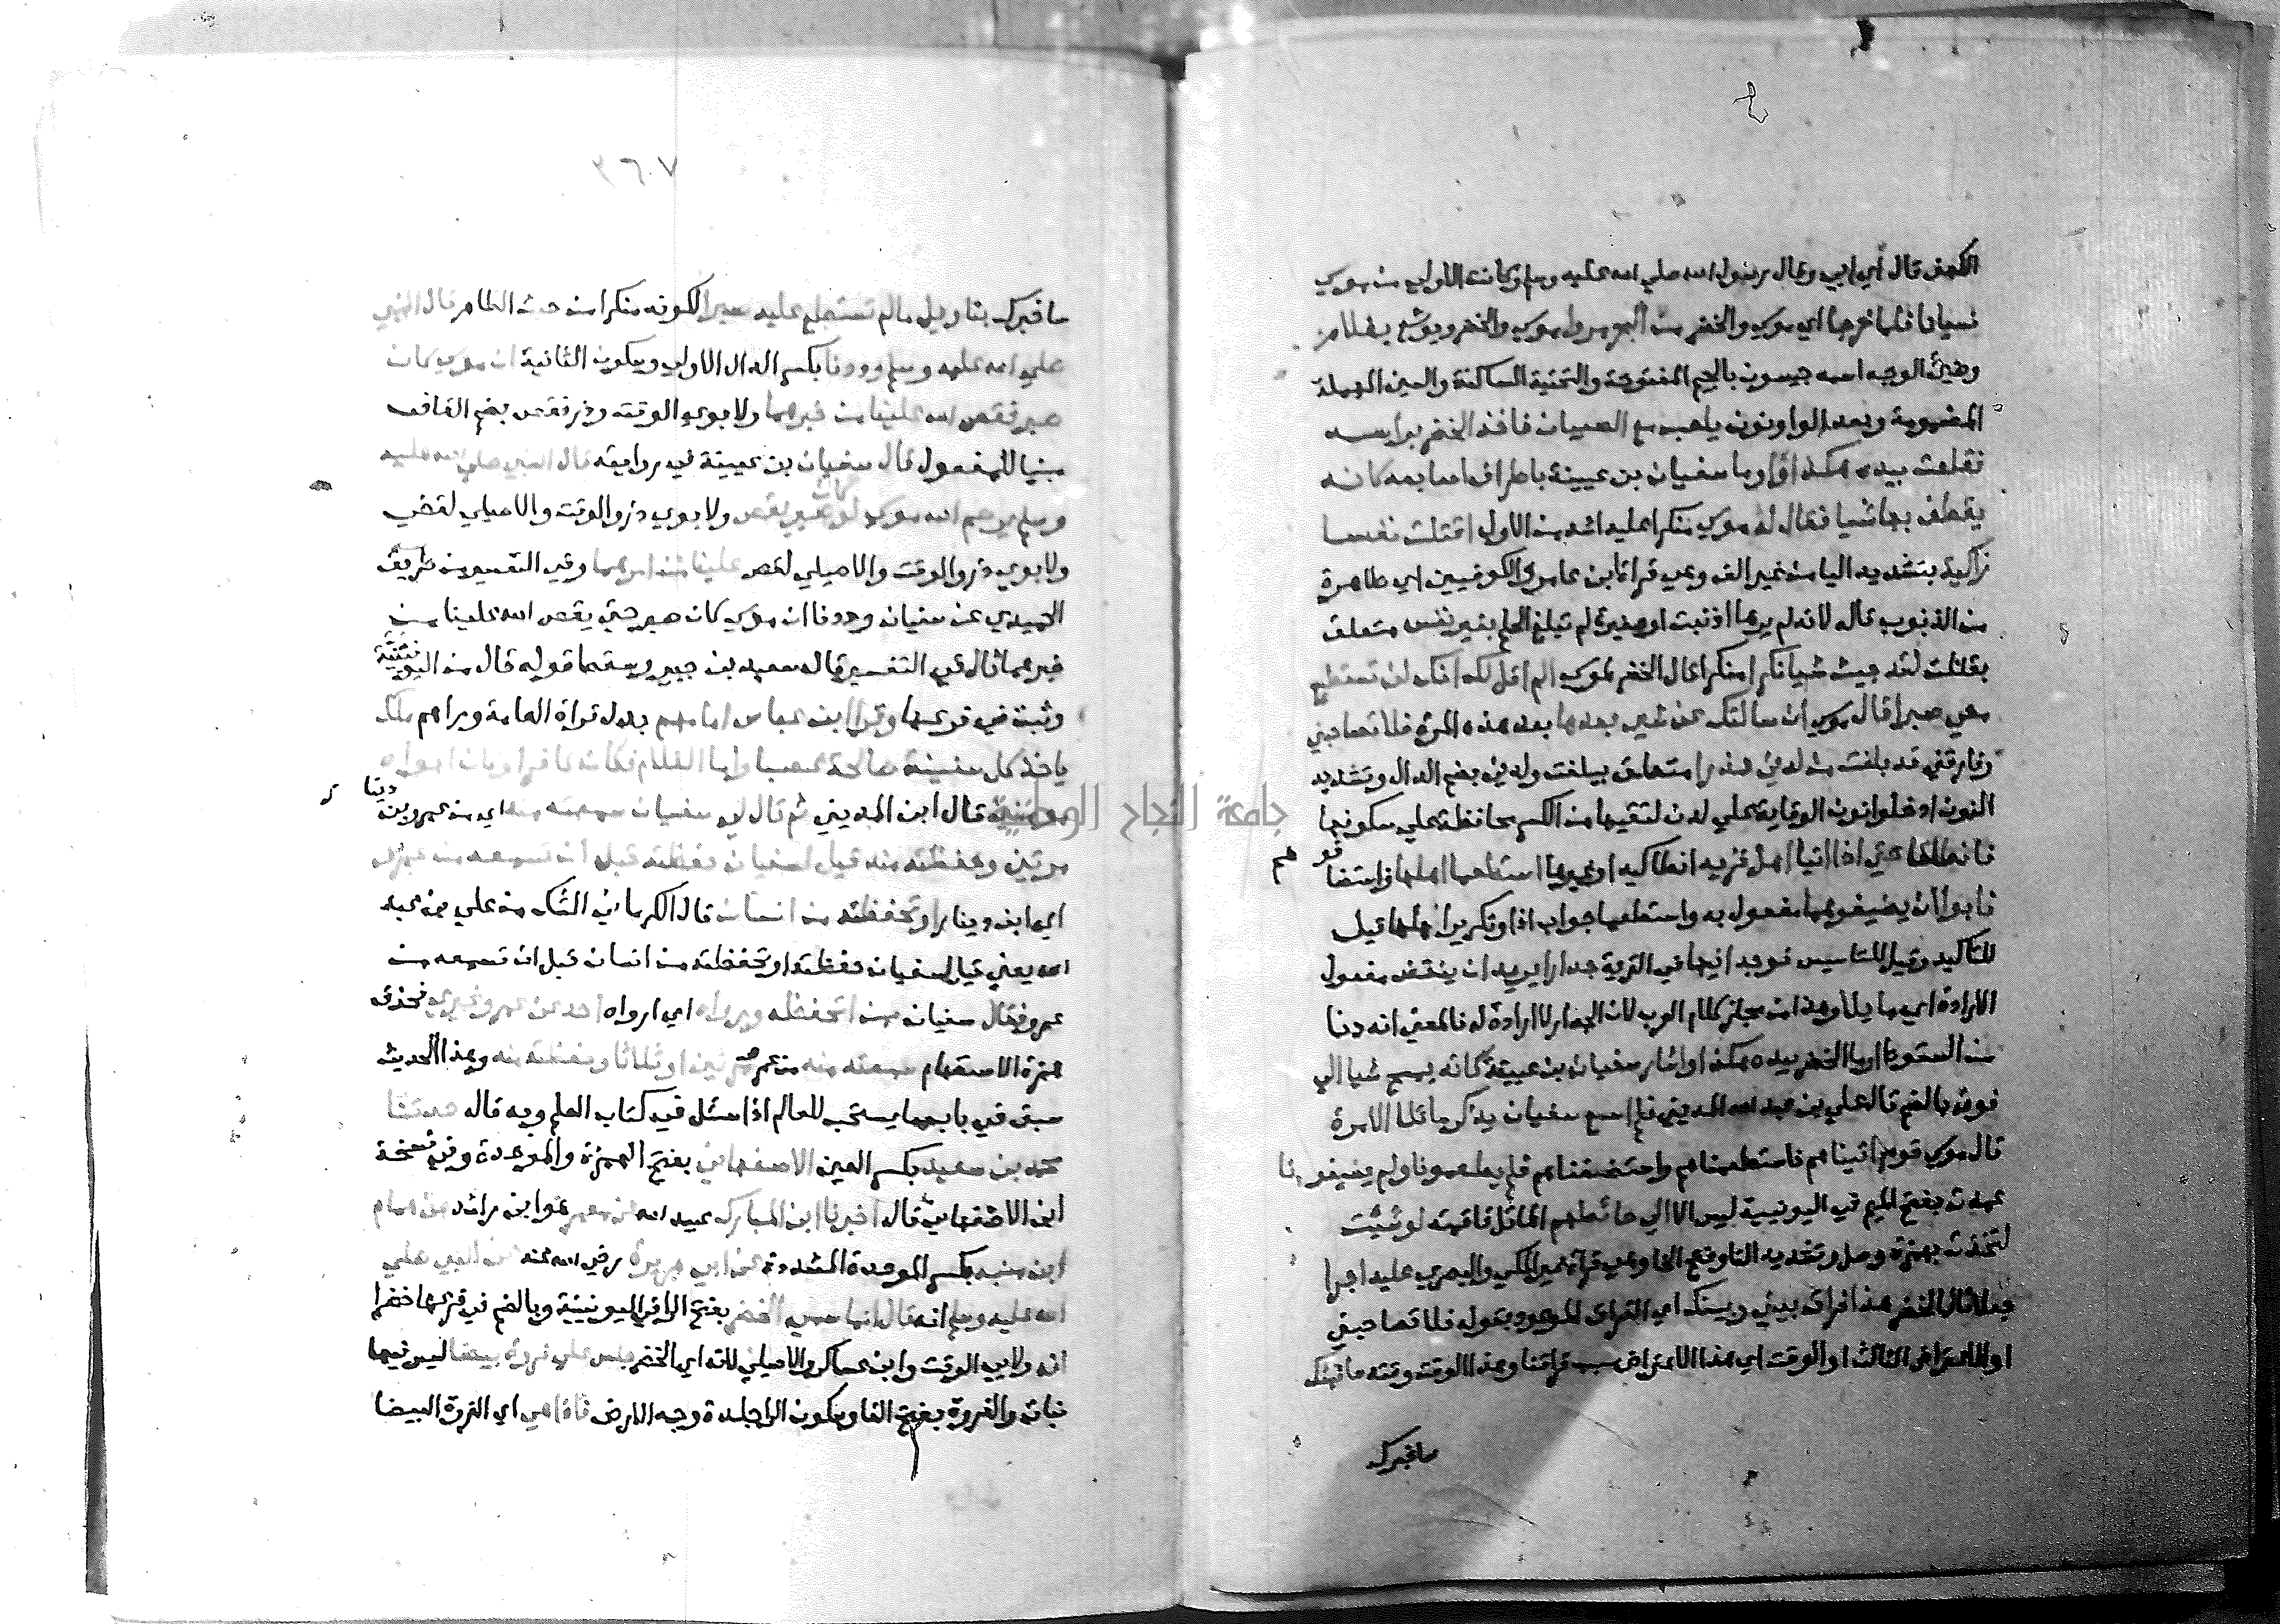 الكهف قال أي ابي وقال رسول الله صلي الله عليه وسلم وكانت الاولي من موسي
نسيانا فلما خرجا اي موسي والخضر من البحر مروا موسي والخضر ويوشع بغلام
وضيئ الوجه اسمه جيسون بالجيم المفتوحة والتحتية الساكنة والسين المهملة
المضمومة وبعد الواو نون يلعب مع الصبيان فاخذ الخضر براسه
فقلعه بيده هكذا اوما سفيان بن عيينة باطراف اصابعه كانه
يقطف بها شيا فقال له موسي منكرا عليه اشد من الاول اقتلت نفسا
زاكية بتشديد اليا من غير الف وهي قراة ابن عامر والكوفيين اي طاهرة
من الذنوب قاله لانه لم يرها اذنبت او صغيرة لم تبلغ الحلم بغير نفس متعلق
بقتلت لقد جيت شيا نكرا منكرا قال الخضر لموسي الم اقل لك انك لن تستطيع
معي صبرا قال موسي ان سالتك عن شيي بعدها بعد هذه المرة فلا تصاحبني
وفارقني قد بلغت من لدني عذرا متعلق ببلغت ولدني بضم الدال وتشديد
النون ادخلوا نون الوقاية علي لدن لتقيها من الكسر محافظة علي سكونها
فانطلقا حتي اذا اتيا اهل قرية انطاكيه او غيرها استطعما اهلها واستضا
فوهم
فابوا ان يضيفوهما مفعول به واستطعما جواب اذا وتكرير اهلها قيل
للتاكيد وقيل للتاسيس فوجدا فيها في القرية جدارا يريد ان ينقض مفعول
الارادة اي مايلا وهذا من مجاز كلام العرب لان الجدار لا ارادة له فالمعني انه دنا
من السقوط اوما الخضر بيده هكذا واشار سفيان بن عيينة كانه يمسح شيا الي
فوق بالضم قال علي بن عبد الله المديني فلم اسمع سفيان يذكر مائلا الا مرة
قال موسي قوم اتيناهم فاستطعمناهم واستضفناهم فلم يطعمونا ولم يضيفونا
عمدت بفتح الميم في اليونينية ليس الا الي حائطهم المائل فاقمته لو شئت
لتخذت بهمزة وصل وتشديد التا وفتح الخا وهي قراة غير المكي والبصري عليه اجرا
جعلا قال الخضر هذا فراق بيني وبينك اي الفراق الموعود بقوله فلا تصاحبني
او الاعتراض الثالث او الوقت اي هذا الاعتراض سبب فراقنا وهذا الوقت وقته سانبئك
ساخبرك
٣٦٧
ساخبرك بتاويل مالم تستطع عليه صبرا لكونه منكرا من حيث الظاهر قال النبي
صلي الله عليه وسلم وددنا بكسر الدال الاولي وسكون الثانية ان موسي كان
صبر فقص الله علينا من خبرهما ولابوي الوقت وذر فقص بضم القاف
مبنيا للمفعول قال سفيان بن عيينة في روايته قال النبي صلي الله عليه
وسلم يرحم الله موسي لو كان صبر يقص ولابوي ذر والوقت والاصيلي لقص
ولابوي ذر والوقت والاصيلي لقص علينا من امرهما وفي التفسير من طريق
الحميدي عن سفيان وددنا ان موسي كان صبر حتي يقص الله علينا من
خبرهما قال في التفسير قال سعيد بن جبير وسقط قوله قال من اليونينية
وثبت في فرعها وقرا ابن عباس امامهم بدل قراة العامة وراهم ملك
ياخذ كل سفينة صالحة غصبا واما الغلام فكان كافرا وكان ابواه
مومنين قال ابن المديني ثم قال لي سفيان سمعته منه اي من عمرو بن دينا
ر
مرتين وحفظته منه قيل لسفيان حفظته قبل ان تسمعه من عمرو
اي ابن دينار او تحفظته من انسان قال الكرماني الشك من علي بن عبد
الله يعني قيل لسفيان حفظته او تحفظته من انسان قبل ان تسمعه من
عمرو فقال سفيان ممن اتحفظه ورواه اي ارواه احد عن عمرو غيري فحذف
همزة الاستفهام سمعته منه من عمرو مرتين او ثلاثا وحفظته منه وهذا الحديث
سبق في باب ما يستحب للعالم اذا سئل في كتاب العلم وبه قال حدثنا
محمد بن سعيد بكسر العين الاصفهاني بفتح الهمزة والموحدة وفي نسخة
ابن الاصفهاني قال اخبرنا ابن المبارك عبد الله عن معمر هو ابن راشد عن همام
ابن منبه بكسر الموحدة المشددة عن ابي هريرة رضي الله عنه عن النبي صلي
الله عليه وسلم انه قال انما سمي الخضر بفتح الرا في اليونينية وبالضم في فرعها خضرا
انه ولابي الوقت وابن عساكر والاصيلي لانه اي الخضر جلس علي فروة بيضا ليس فيها
نبات والفروة بفتح الفا وسكون الرا جلدة وجه الارض فاذا هي اي الفروة البيضا
جامعة النجاح الوطنية